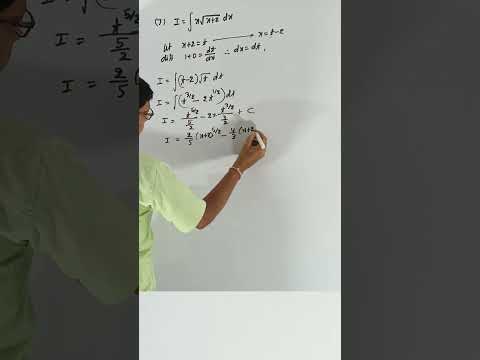 (7) I = ∫ x√(x+2) dx
let x+2 = t → x = t-2
diff 1+0 = dt/dx ∴ dx = dt.
I = ∫ (t-2) √t dt
I = ∫ (t^3/2 - 2t^1/2) dt
I = t^5/2 / 5/2 - 2 × t^3/2 / 3/2 + C
I = 2/5 (x+2)^5/2 - 4/3 (x+2